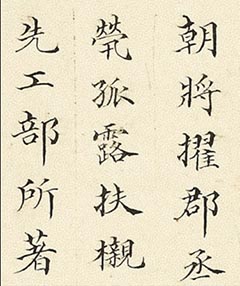 朝將擢郡丞
煢孤露扶櫬
先工部所著